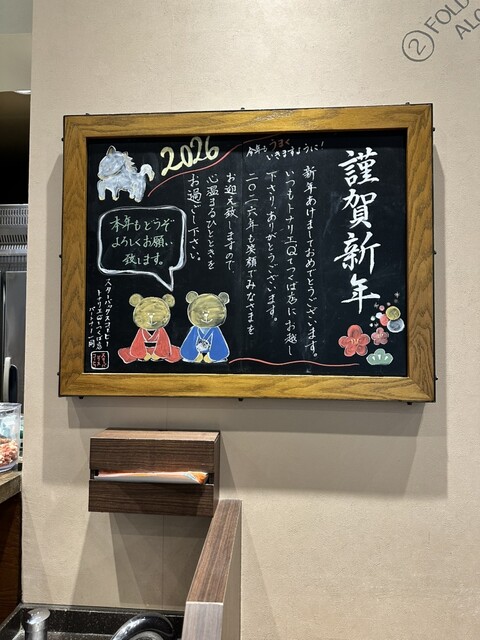 謹賀新年
新年あけましておめでとうございます。
いつもトナリエQ'tつくば店にお越し
下さり、ありがとうございます。
二〇二六年も笑顔でみなさまを
お迎え致しますので
心温まるひとときを
お過ごし下さい。
2026
今年もうまく
いきますように!
本年もどうぞ
よろしくお願い
致します。
スターバックスコーヒー
トナリエQ'tつくば店
パートナー一同
② FOLD
ALO